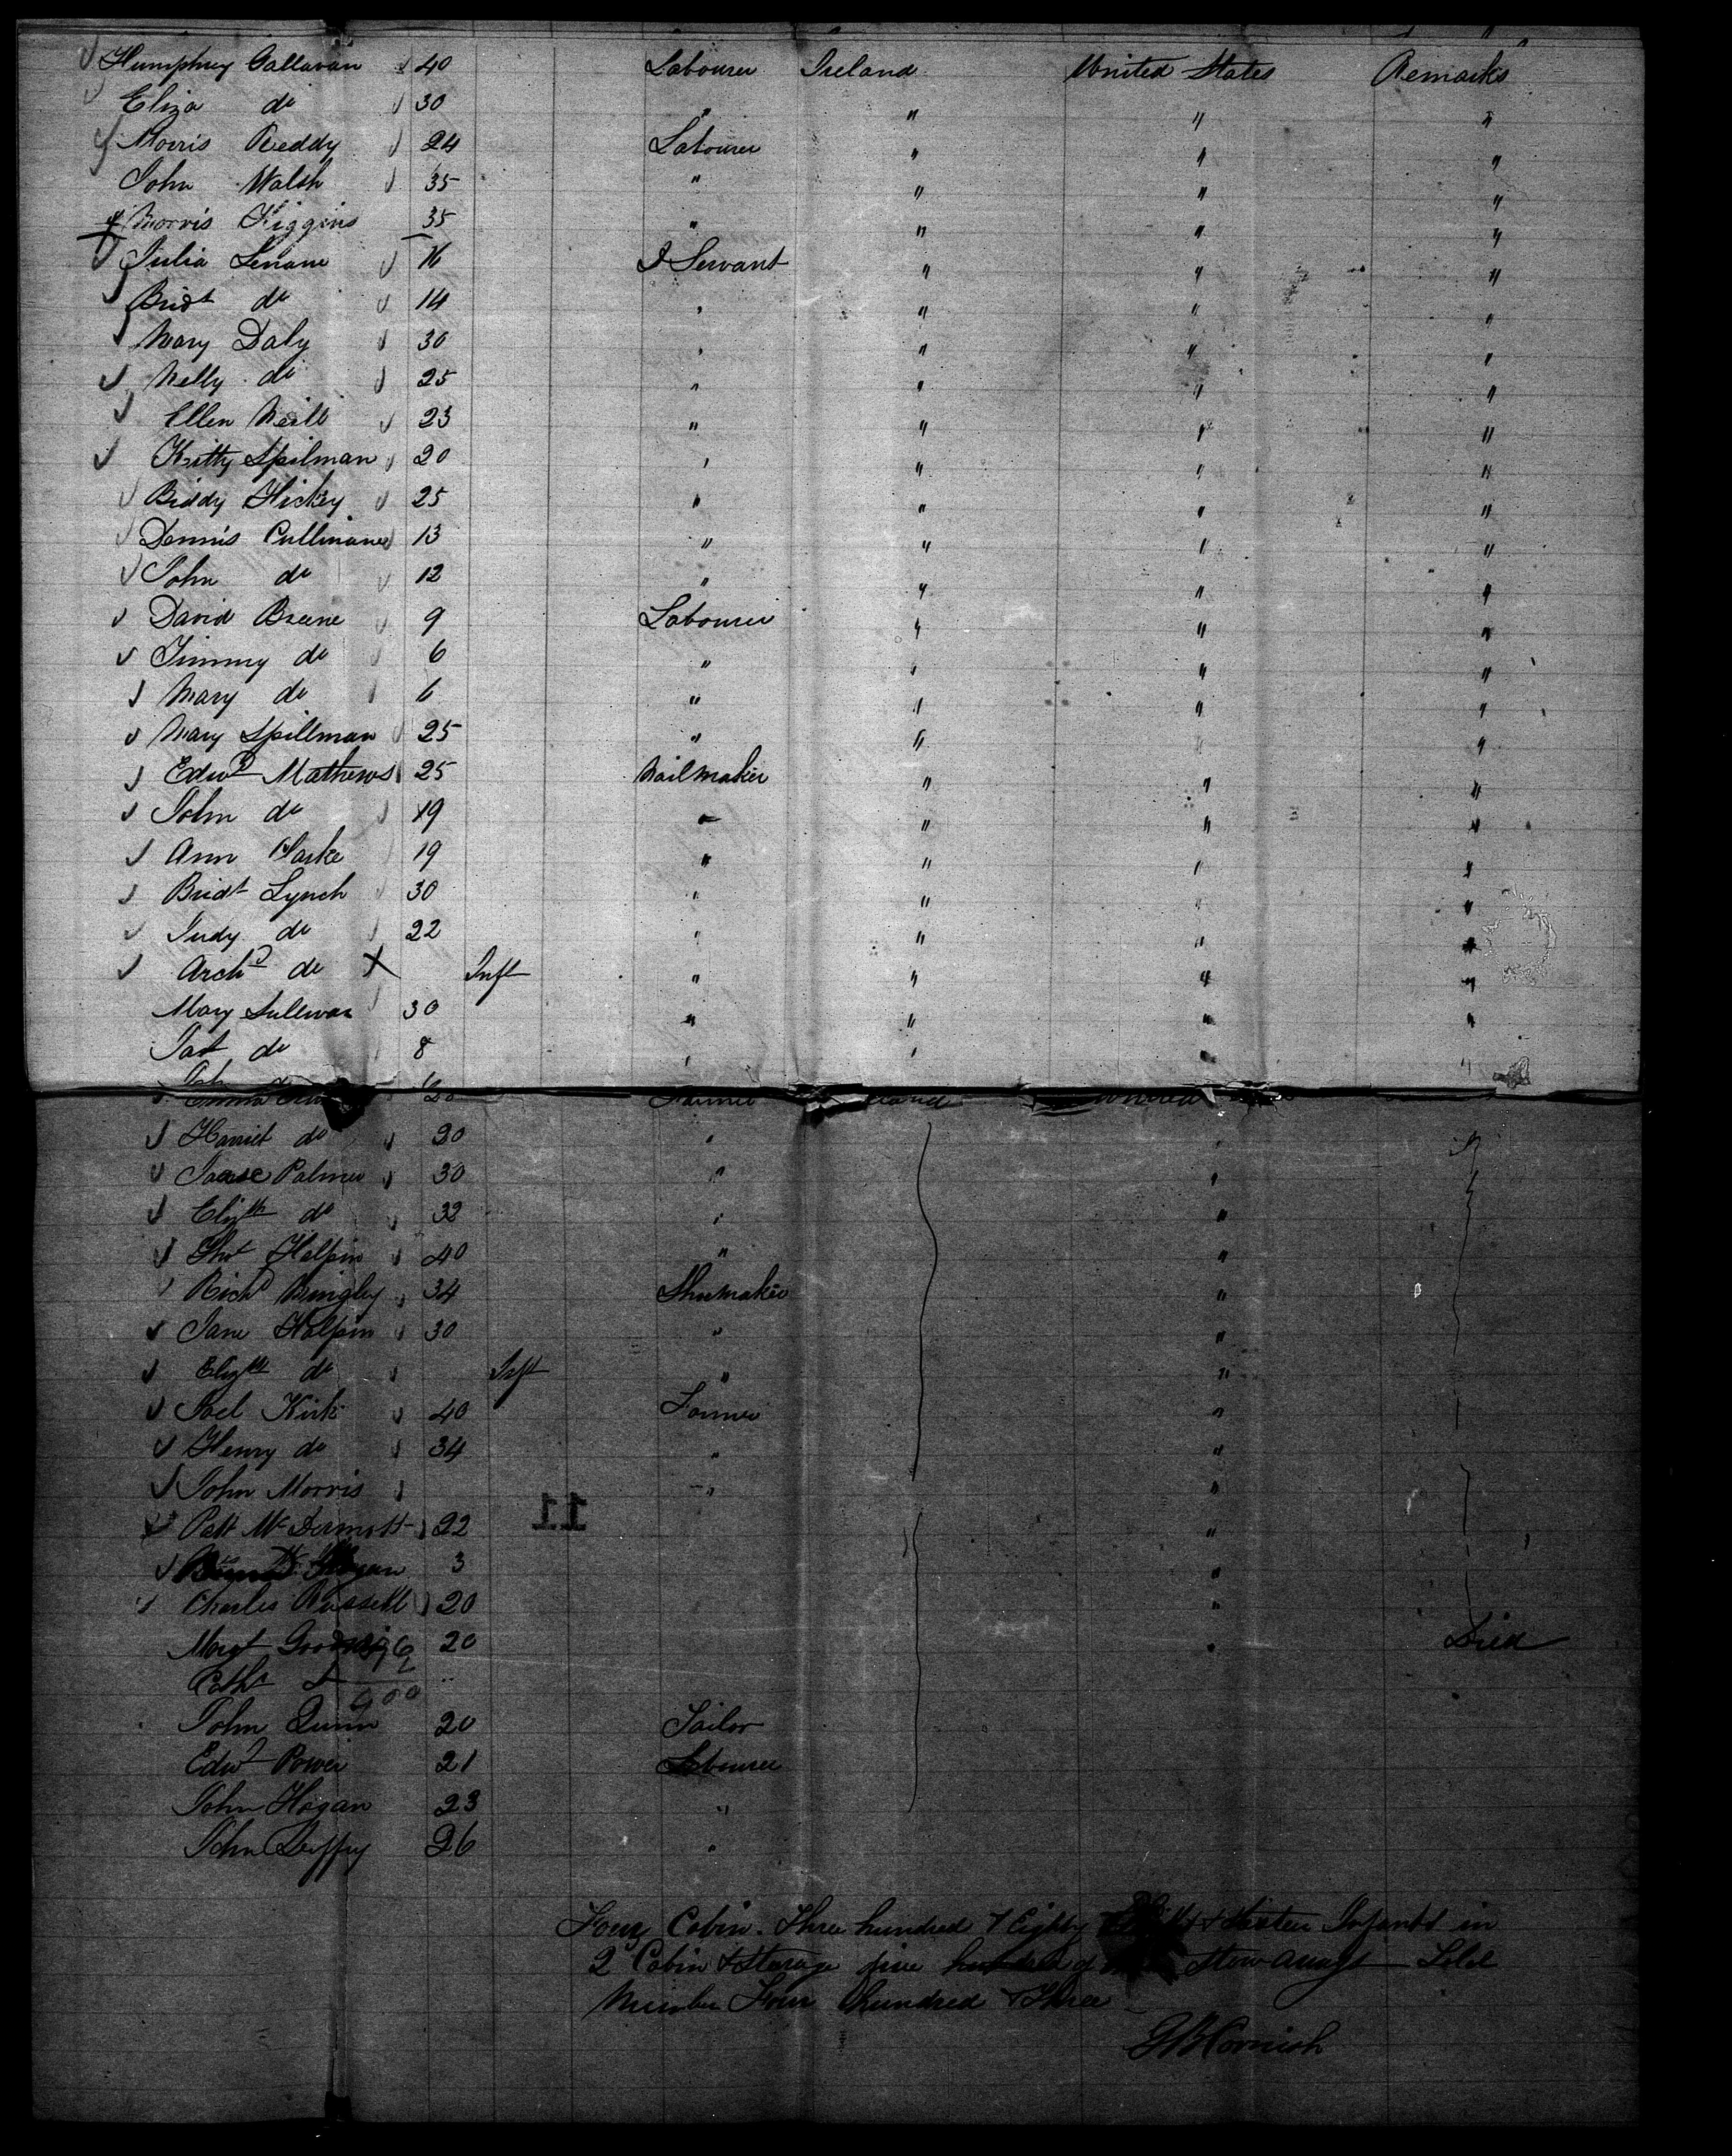 Humphrey Callavan 40 Labourer Ireland United States Remarks
Eliza do 30 " " " "
Morris Reddy 24 Labourer " " "
John Walsh 35 " " " "
Morris Higgins 35 " " " "
Julia Lenane 16 D Servant " " "
Bridt do 14 " " " "
Mary Daly 30 " " " "
Nelly do 25 " " " "
Ellen Neill 23 " " " "
Kitty Spilman 20 " " " "
Biddy Hickey 25 " " " "
Dennis Cullinane 13 " " " "
John do 12 " " " "
David Breene 9 Labourer " " "
Jimmy do 6 " " " "
Mary do 6 " " " "
Mary Spillman 25 " " " "
Edwd Mathews 25 Nailmaker " " "
John do 19 " " " "
Ann Clarke 19 " " " "
Bridt Lynch 30 " " " "
Judy do 22 " " " "
Archd do X Inft " " " "
Mary Sullivan 30 " " " "
Pat do 8 " " " "
Emma
Harriet do 20 " "
Isaac Palmer 30 " "
Elizth do 32 " "
Thos Halpin 40 " "
Richd Bingley 34 Shumaker "
Jane Halpin 30 " "
Elizth do Inft " "
Joel Kirk 40 Farmer "
Henry do 34 " "
John Morris " "
Patt McDermott 22 "
11
3 "
Charles Russell 20 "
Margt 20 " Died
Cathe
400
John Quinn 20 Sailor
Edwd Power 21 Labourer
John Hogan 23 "
John Duffy 26 "
Four Cabin. Three hundred & Eighty & Sixteen Infants in
2d Cabin & Sterage five hundred of Stowaways Total
Number Four hundred & Three
G B Cornish